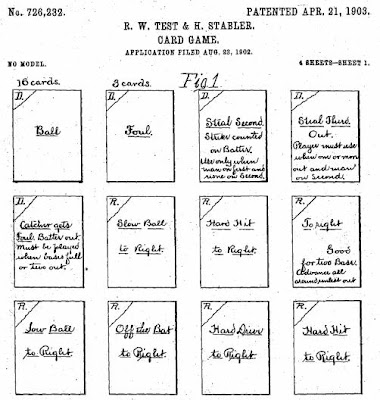 No. 726,232. PATENTED APR. 21, 1903.
R. W. TEST & H. STABLER.
CARD GAME.
APPLICATION FILED AUG. 23, 1902.
NO MODEL. 4 SHEETS—SHEET 1.
16 cards. 3 cards. Fig 1
D.
Ball
D.
Foul.
D.
Steal Second.
Strike counted
on Batter.
Use only when
man on first and
none on Second.
D.
Steal Third
Out.
Player must use
when one or more
out and man
on Second.
D.
Catcher gets
Foul. Batter out
must be played
when bases full
or two out.
R.
Slow Ball
to Right
R.
Hard Hit
to Right.
R.
To right
Good
for two Bases.
Advance all
around unless out
R.
Low Ball
to Right.
R.
Off the Bat
to Right.
R.
Hard Drive
to Right.
R.
Hard Hit
to Right.